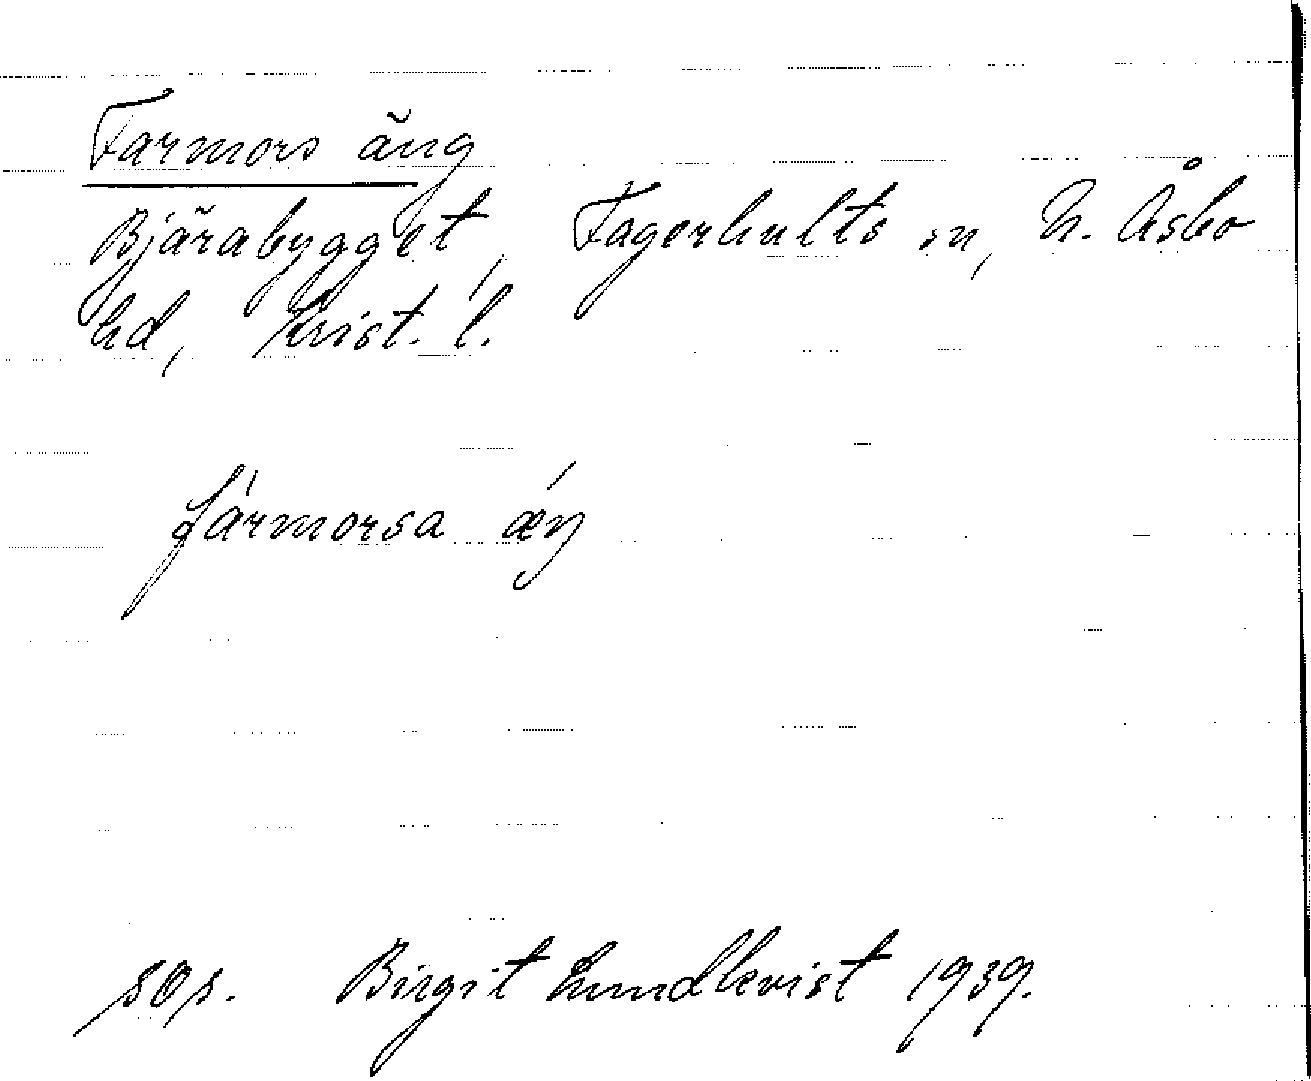 Farmors äng
Bjärabygget, Fagerhults sn, N. Åsbo
hd, Krist. l.
fármorsa ǽŋ
Birgit Lundkvist 1939.